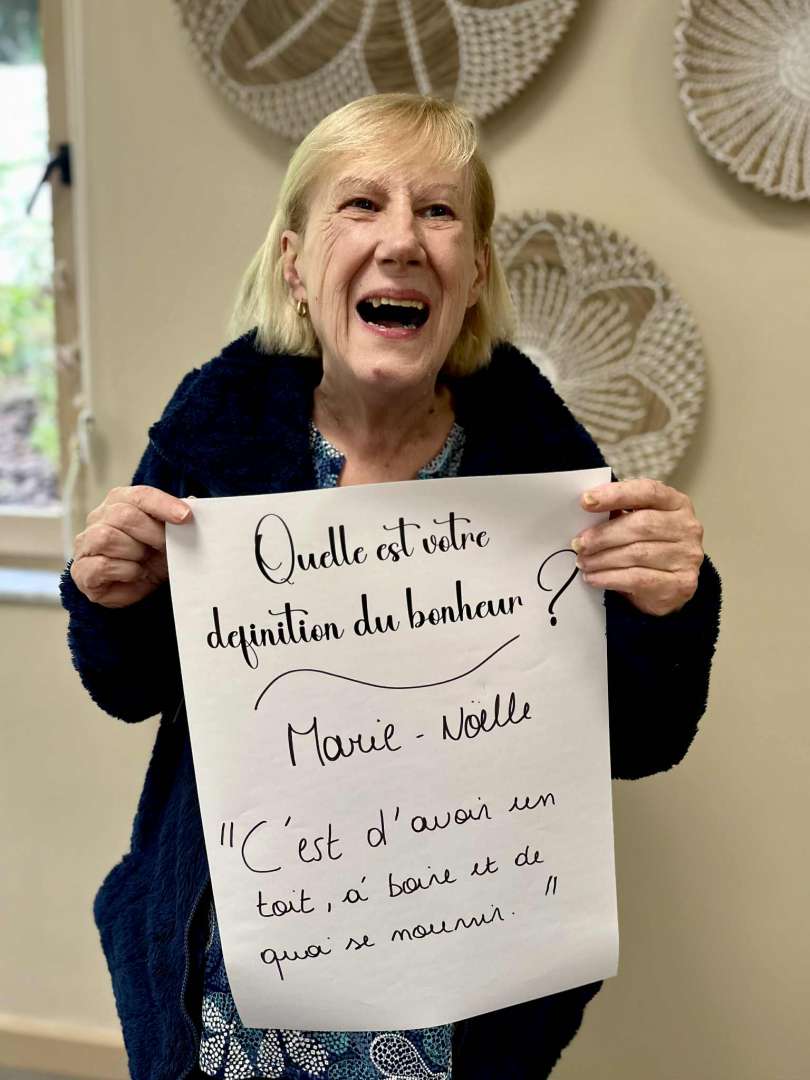 Quelle est votre
definition du bonheur ?
Marie - Noëlle
"C'est d'avoir un
toit, à boire et de
quoi se nourrir. "